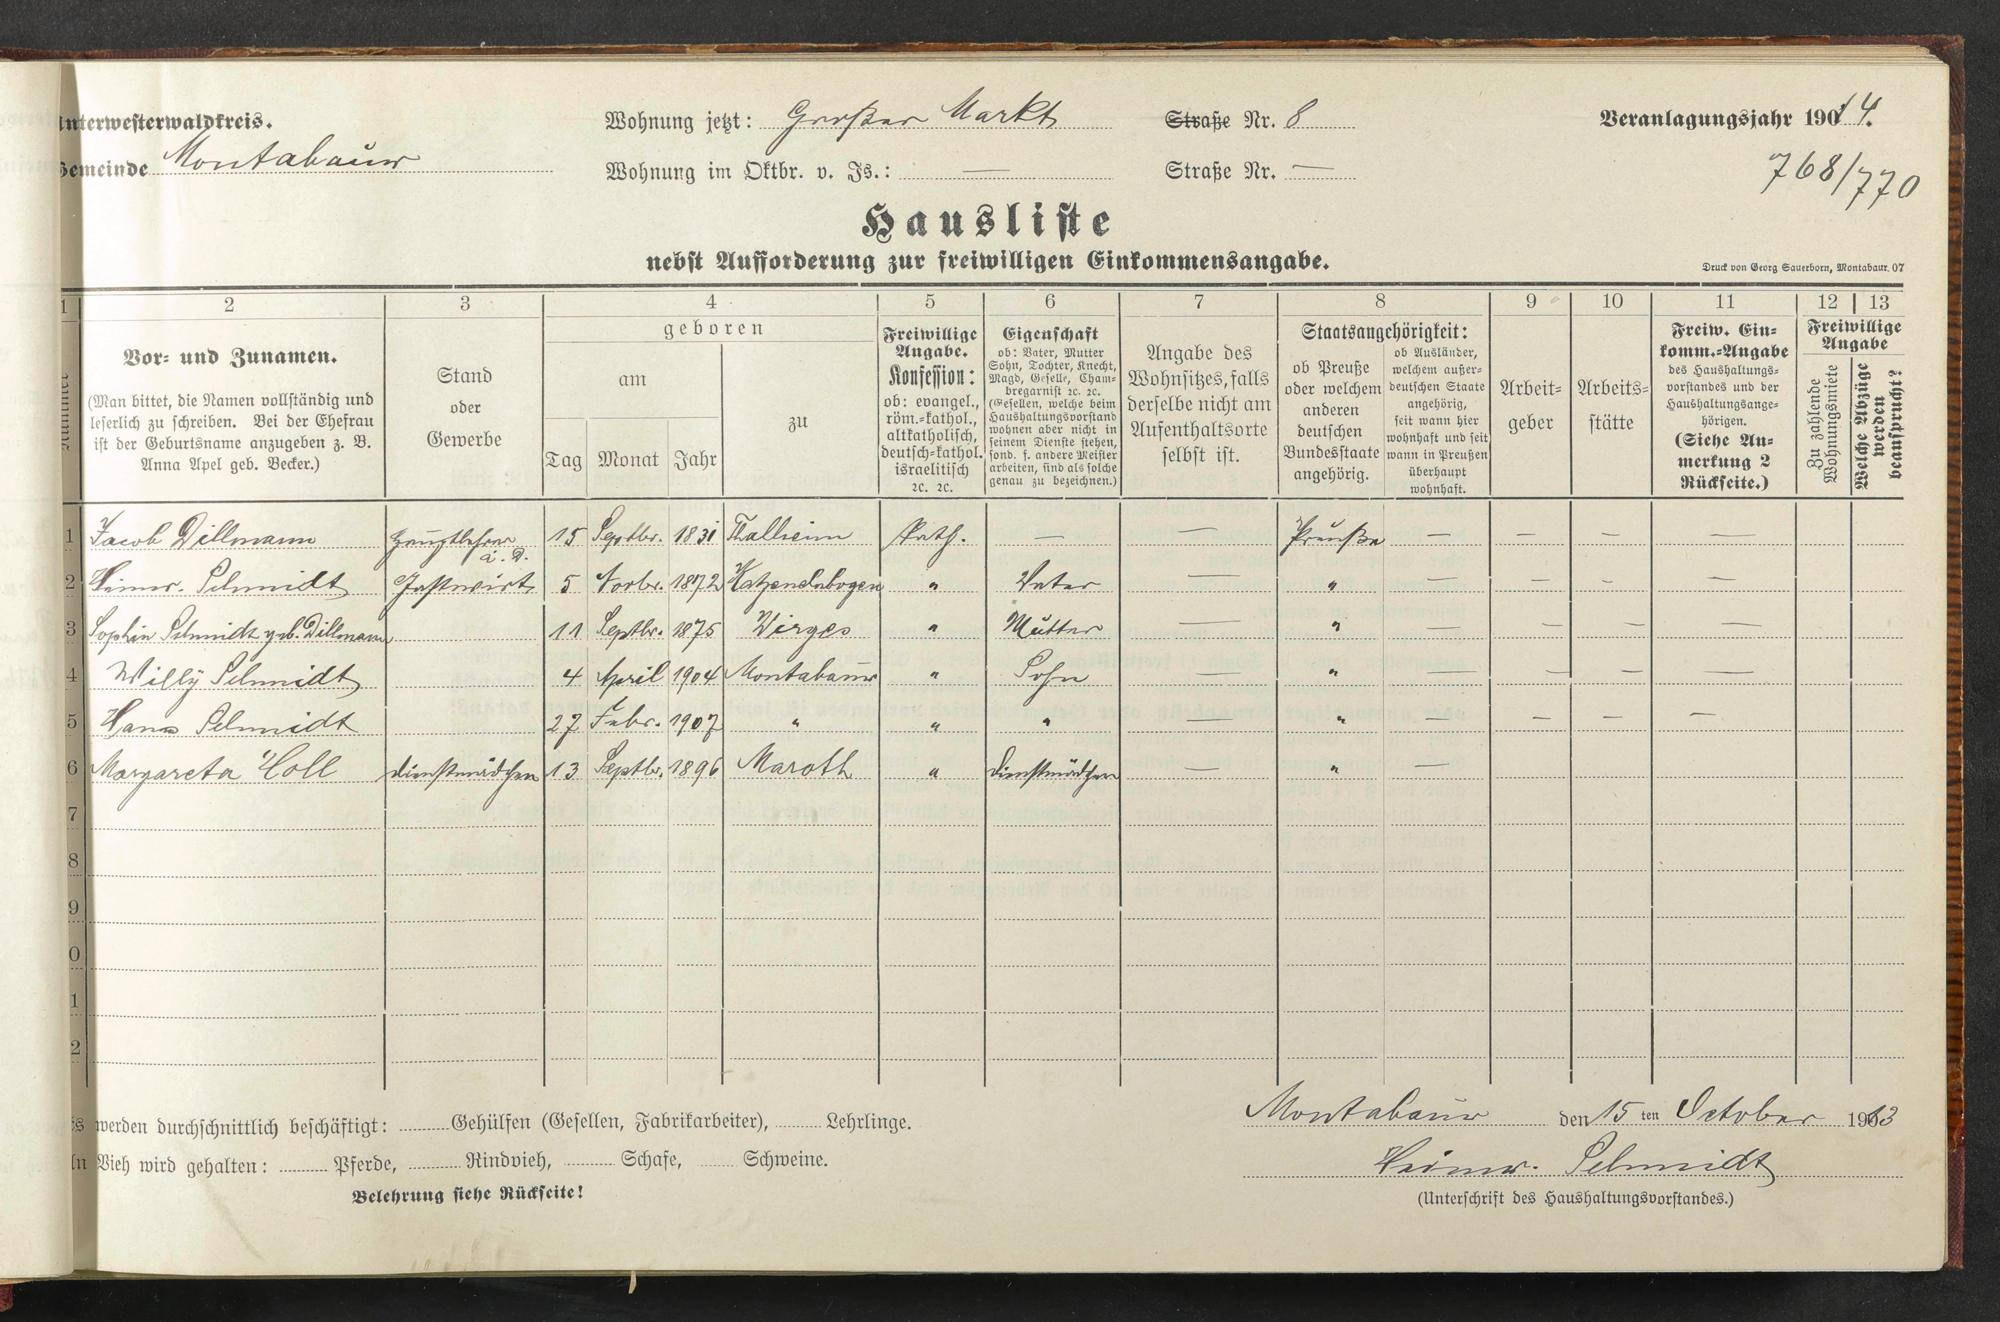 Unterwesterwaldkreis.
Gemeinde Montabaur
Wohnung jetzt: Großer Markt Straße Nr. 8
Wohnung im Oktbr. v. Js.: — Straße Nr. —
Veranlagungsjahr 1914.
768/770
Hausliste
nebst Aufforderung zur freiwilligen Einkommensangabe.
Druck von Georg Sauerborn, Montabaur. 07
1 2 3 4 5 6 7 8 9 10 11 12 13
Nummer
Vor- und Zunamen.
(Man bittet, die Namen vollständig und
leserlich zu schreiben. Bei der Ehefrau
ist der Geburtsname anzugeben z. B.
Anna Apel geb. Becker.)
Stand
oder
Gewerbe
geboren
am
Tag Monat Jahr
zu
Freiwillige
Angabe.
Konfession:
ob: evangel.,
röm.-kathol.,
altkatholisch,
deutsch-kathol.
israelitisch
2c. 2c.
Eigenschaft
ob: Vater, Mutter
Sohn, Tochter, Knecht,
Magd, Geselle, Cham-
bregarnist 2c. 2c.
(Gesellen, welche beim
Haushaltungsvorstand
wohnen aber nicht in
seinem Dienste stehen,
sond. f. andere Meister
arbeiten, sind als solche
genau zu bezeichnen.)
Angabe des
Wohnsitzes, falls
derselbe nicht am
Aufenthaltsorte
selbst ist.
Staatsangehörigkeit:
ob Preuße
oder welchem
anderen
deutschen
Bundesstaate
angehörig.
ob Ausländer,
welchem außer-
deutschen Staate
angehörig,
seit wann hier
wohnhaft und seit
wann in Preußen
überhaupt
wohnhaft.
Arbeit-
geber
Arbeits-
stätte
Freiw. Ein-
komm.-Angabe
des Haushaltungs-
vorstandes und der
Haushaltungsange-
hörigen.
(Siehe An-
merkung 2
Rückseite.)
Freiwillige
Angabe
Zu zahlende
Wohnungsmiete
Welche Abzüge
werden
beansprucht?
1 Jacob Dillmann Hauptlehrer a. D. 15 Septbr. 1831 Thalheim Kath. — — Preuße — — — —
2 Heinr. Schmidt Gastwirt 5 Novbr. 1872 Katzenelnbogen " Vater — " — — — —
3 Sophie Schmidt geb. Dillmann 11 Septbr. 1875 Wirges " Mutter — " — — — —
4 Willy Schmidt 4 April 1904 Montabaur " Sohn — " — — — —
5 Hans Schmidt 27 Febr. 1907 " " " — " — — — —
6 Margareta Coll Dienstmädchen 13 Septbr. 1896 Maroth " Dienstmädchen — " —
7
8
9
0
1
2
Es werden durchschnittlich beschäftigt: Gehülfen (Gesellen, Fabrikarbeiter), Lehrlinge.
An Vieh wird gehalten: Pferde, Rindvieh, Schafe, Schweine.
Belehrung siehe Rückseite!
Montabaur den 15 ten October 1913
Heinr. Schmidt
(Unterschrift des Haushaltungsvorstandes.)